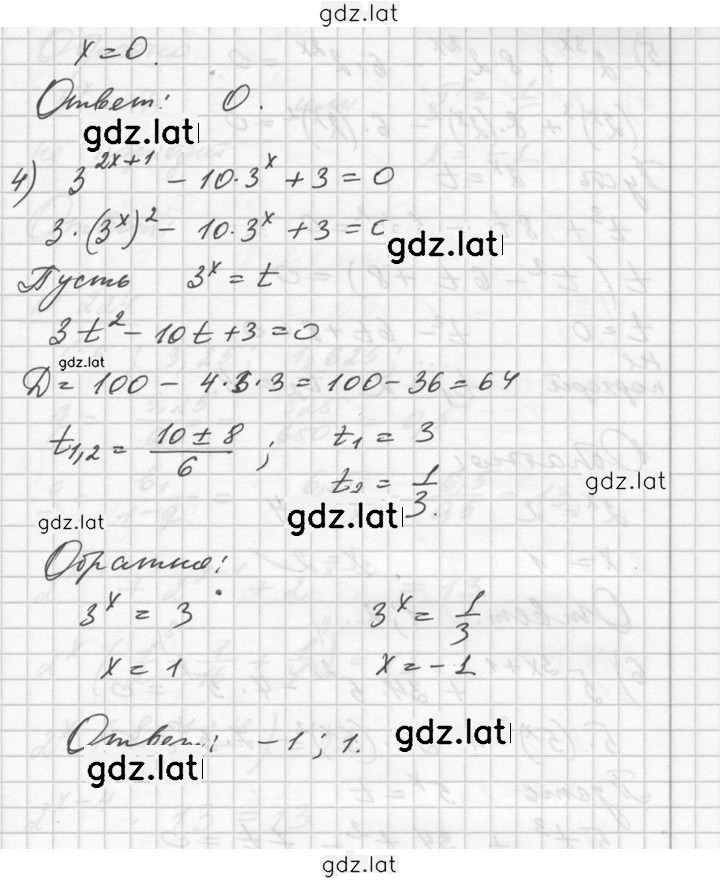 gdz.lat
x = 0.
Ответ: 0.
gdz.lat
4) 3^(2x+1) - 10·3^x + 3 = 0
3·(3^x)^2 - 10·3^x + 3 = 0
gdz.lat
Пусть 3^x = t
3t^2 - 10t + 3 = 0
gdz.lat
Д = 100 - 4·3·3 = 100 - 36 = 64
t1,2 = (10 ± 8)/6 ; t1 = 3
t2 = 1/3.
gdz.lat
gdz.lat
gdz.lat
Обратно:
3^x = 3 3^x = 1/3
x = 1 x = -1
Ответ: -1; 1.
gdz.lat
gdz.lat
gdz.lat